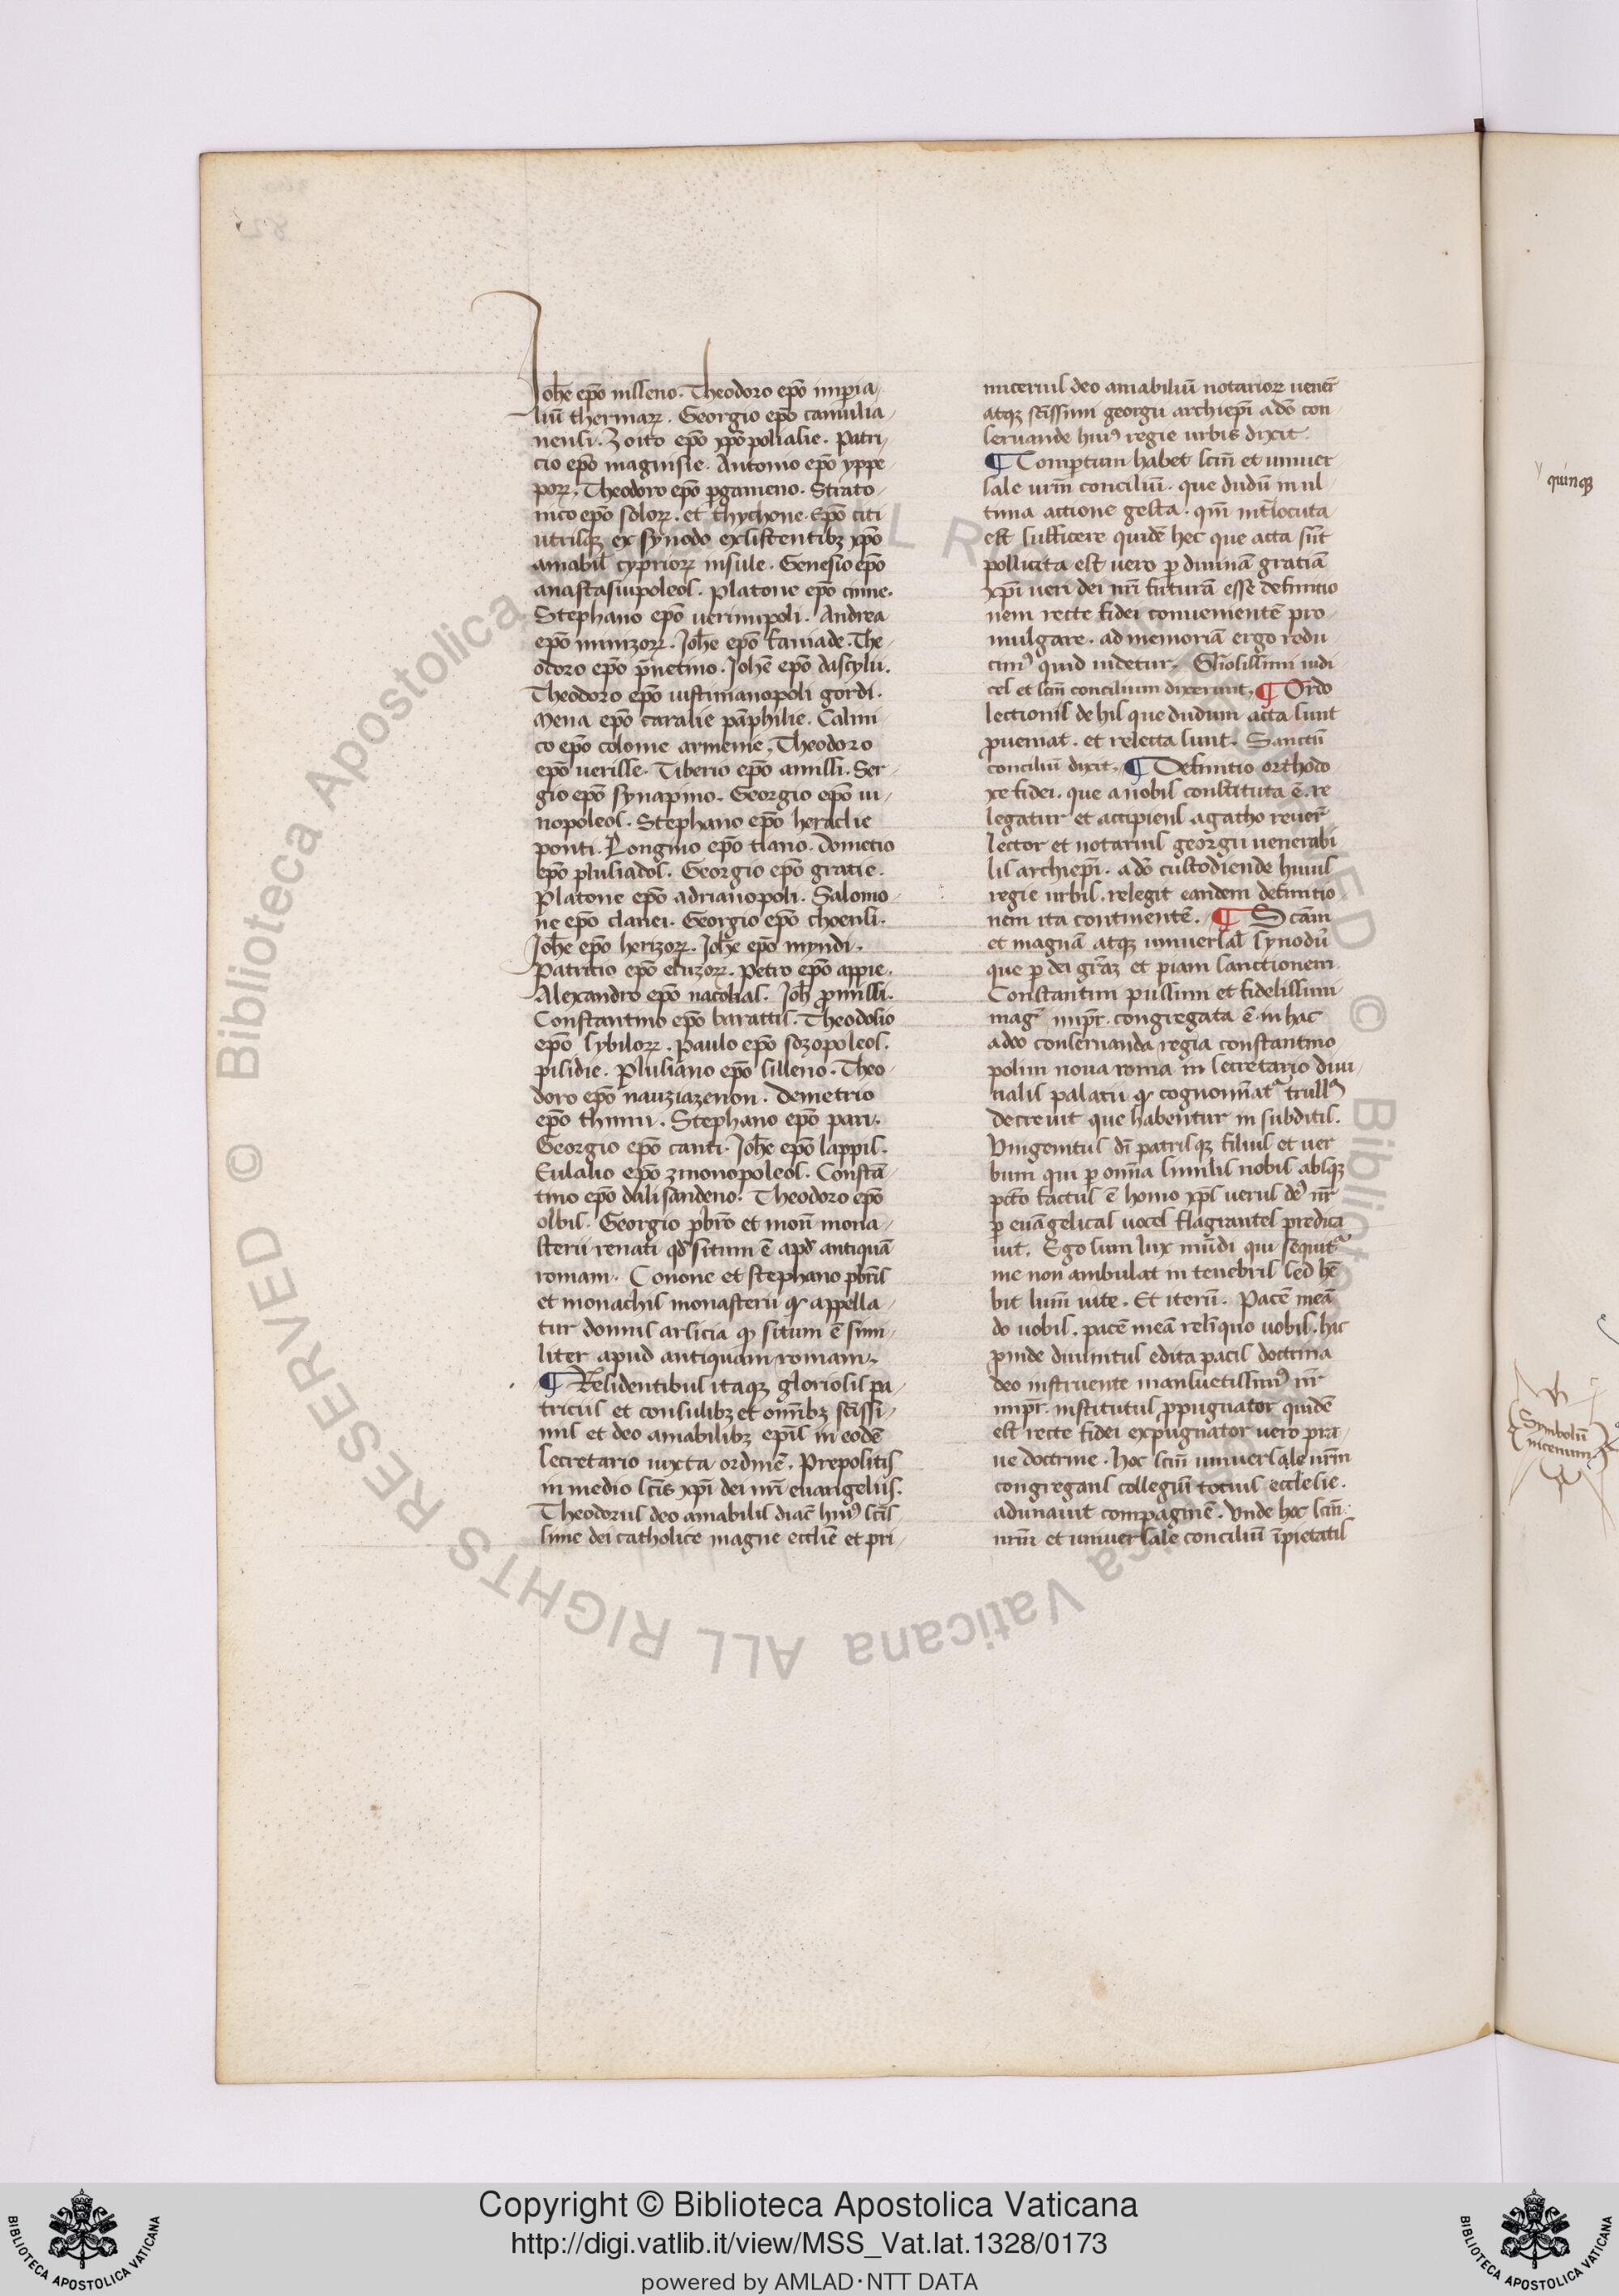 Johē epō nilleno. Theodoro epō imperia
liū thermarꝝ. Georgio epō camulia
nensi. Zoito epō xpōpolialie. Patri
cio epō magnisie. Antonio epō yppe
porꝝ. Theodoro epō pgameno. Strato
nico epō solorꝝ. et thychone. Epō citi
utrisqꝫ ex synodo existentibꝫ xpō
amabil cypriorꝝ insule. Genesio epō
anastasiupoleos. Platone epō cinne.
Stephano epō uerinupoli. Andrea
epō mnizorꝝ. Johē epō faniade. The
odoro epō pnetino. Johē epō dascylii.
Theodoro epō iustinianopoli gordi.
Mena epō caralie pāphilie. Calini
co epō colonie armenie. Theodoro
epō uerisse. Tiberio epō amissi. Ser
gio epō synapino. Georgio epō iu
nopoleos. Stephano epō heraclie
ponti. Longino epō tiano. Dometio
epō plusiados. Georgio epō gratie.
Platone epō adrianopoli. Salomo
ne epō clanei. Georgio epō choensi.
Johē epō herizorꝝ. Johē epō myndi.
Patricio epō eluzorꝝ. Petro epō appie.
Alexandro epō nacolias. Joh primissi.
Constantino epō barattis. Theodosio
epō sybilorꝝ. Paulo epō sozopoleos.
pisidie. Plusiano epō silleno. Theo
doro epō nauziazenon. Demetrio
epō thinii. Stephano epō pari.
Georgio epō canti. Johē epō lappis.
Eulalio epō zinonopoleos. Constā
tino epō dalisandeno. Theodoro epō
olbis. Georgio pbrō et mon mona
sterii renati qd situm ē apd antiquā
romam. Conone et stephano pbris
et monachis monasterii qd appella
tur domus arsicia qd situm ē simi
liter apud antiquam romam.
¶ Residentibus itaqꝫ gloriosis pa
triciis et consulibꝫ et omībꝫ scissi
mis et deo amabilibꝫ epis in eodē
secretario iuxta ordinē. Prepositis
in medio scis xpi dei nri euangeliis.
Theodorus deo amabilis diac huiꝰ scis
sime dei catholice magne ecclie et pri
micerius deo amabiliū notariorꝝ uener
atqꝫ scissimi georgii archiepi a dō con
seruande huiꝰ regie urbis dixit.
¶ Compertum habet scm et uniuer
sale urm conciliū. que dudū in ul
tima actione gesta. qm int̄locuta
est sufficere quidē hec que acta sūt
pollicita est uero p diuinā gratiā
xpi ueri dei nri futurā esse definitio
nem recte fidei conuenientē pro
mulgare. ad memoriā ergo redu
cimꝰ quid uidetur. Gliosissimi iudi
ces et scm concilium dixerunt. ¶ Ordo
lectionis de his que dudum acta sunt
pueniat. et relecta sunt. Sanctū
conciliū dixit. ¶ Definitio orthodo
xe fidei. que a nobis constituta ē. re
legatur et accipiens agatho reuer
lector et notarius georgii uenerabi
lis archiepi. a dō custodiende huius
regie urbis. relegit eandem definitio
nem ita continentē. ¶ Scam
et magnā atqꝫ uniuersal synodū
que p dei graꝫ et piam sanctionem
Constantini piissimi et fidelissimi
mag impr. congregata ē in hac
a deo conseruanda regia constantino
polim noua roma in secretario diui
nalis palatii qd cognominat trullꝰ
decreuit que habentur in subditis.
Unigenitus di patrisqꝫ filius et uer
bum qui p omia similis nobis absqꝫ
pctō factus ē homo xps uerus deꝰ nr
p euāgelicas uoces flagrantes predica
uit. Ego sum lux mūdi qui sequit
me non ambulat in tenebris sed hē
bit lum uite. Et iterū. Pacē meā
do uobis. pacē meā relinquo uobis. hac
pinde diuinitus edita pacis doctrina
deo instruente mansuetissimꝰ nr
impr. institutus ppugnator quidē
est recte fidei expugnator uero pra
ue doctrine. hoc scm uniuersale nrm
congregans collegiū totius ecclesie.
adunauit compaginē. Unde hoc scm
nrm et uniuersale conciliū īpietatis
quinqꝫ
Symbolū
nicenum
Copyright © Biblioteca Apostolica Vaticana
http://digi.vatlib.it/view/MSS_Vat.lat.1328/0173
powered by AMLAD·NTT DATA
BIBLIOTECA APOSTOLICA VATICANA
BIBLIOTECA APOSTOLICA VATICANA